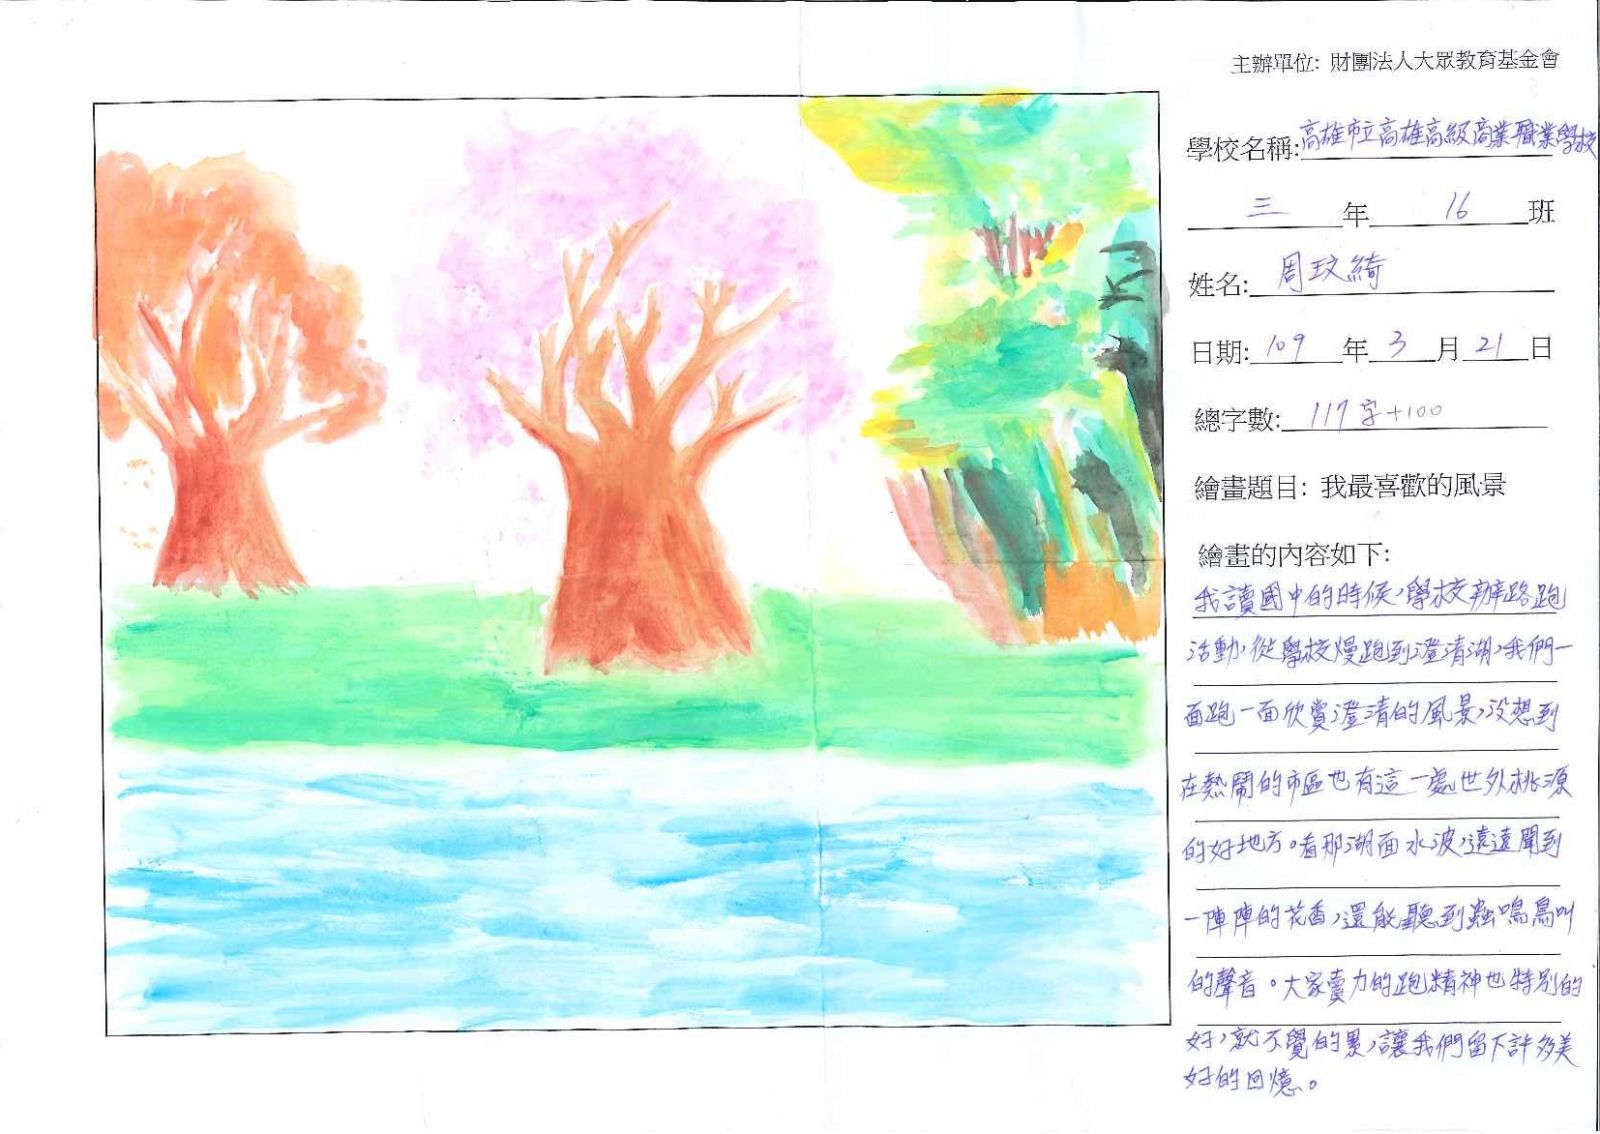 主辦單位: 財團法人大眾教育基金會
學校名稱:高雄市立高雄高級商業職業學校
三年16班
姓名:周玟綺
日期:109年3月21日
總字數:117字+100
繪畫題目: 我最喜歡的風景
繪畫的內容如下:
我讀國中的時候,學校辦路跑
活動,從學校慢跑到澄清湖,我們一
面跑一面欣賞澄清的風景,沒想到
在熱鬧的市區也有這一處世外桃源
的好地方。看那湖面水波,遠遠聞到
一陣陣的花香,還能聽到蟲鳴鳥叫
的聲音。大家賣力的跑精神也特別的
好,就不覺的累,讓我們留下許多美
好的回憶。